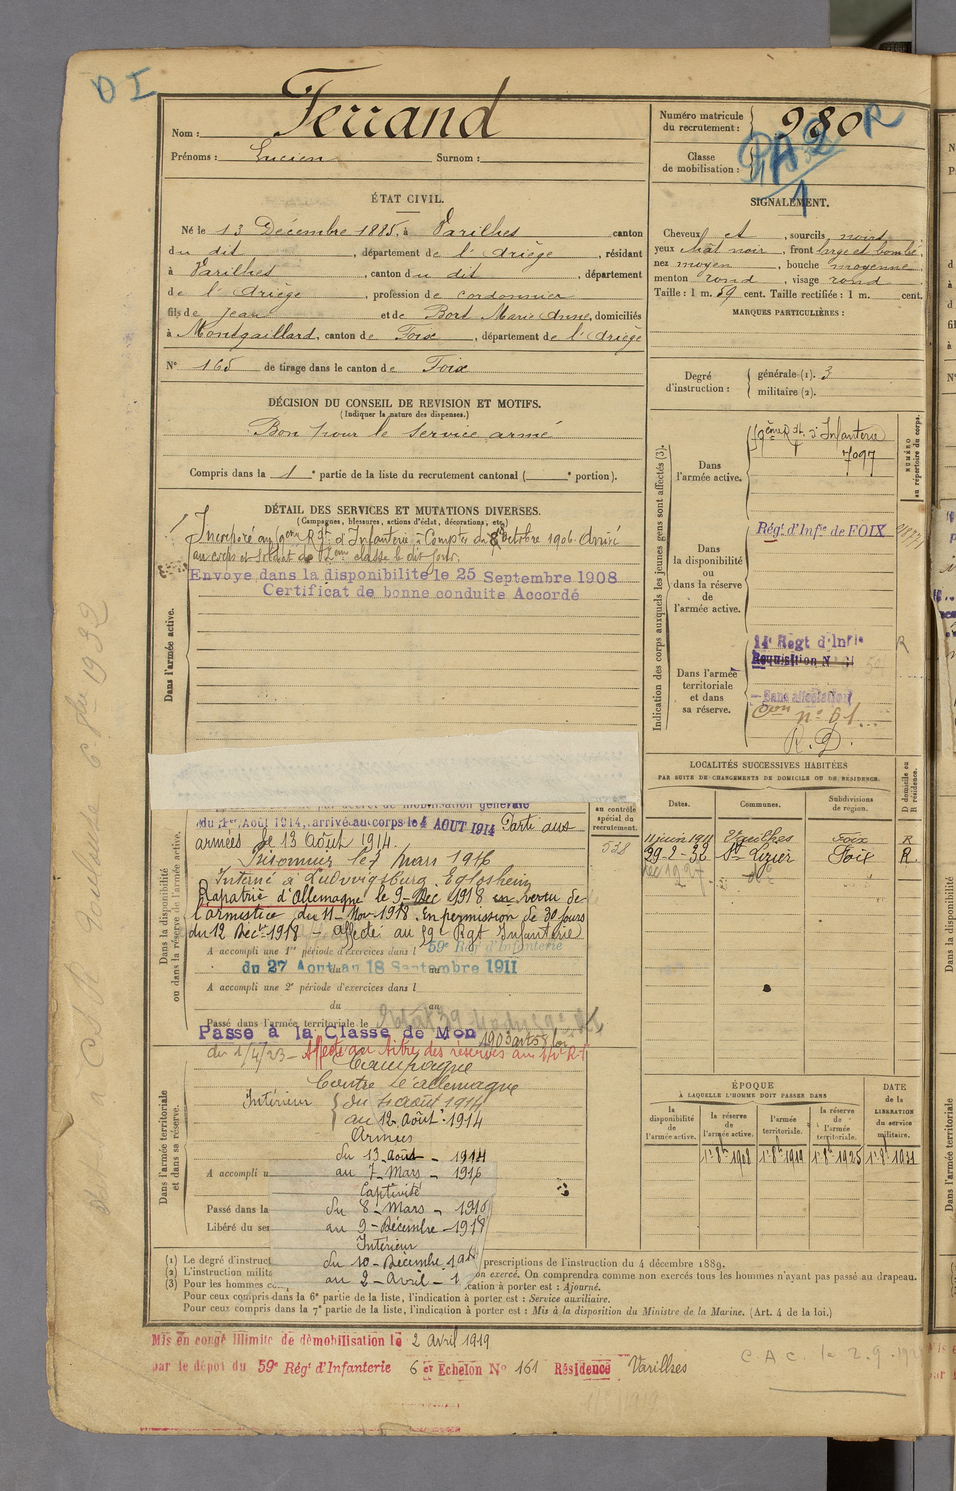 O I
Nom : Ferrand
Prénoms : Lucien Surnom :
Numéro matricule du recrutement : 980
R
Classe de mobilisation :
PA 2
1
ÉTAT CIVIL.
Né le 13 Décembre 1885, à Varilhes canton
du dit, département de l'Ariège, résidant
à Varilhes, canton du dit, département
de l'Ariège, profession de cordonnier
fils de Jean et de Bort Marie Anne, domiciliés
à Montgaillard, canton de Foix, département de l'Ariège
N° 165 de tirage dans le canton de Foix
SIGNALEMENT.
Cheveux et, sourcils noirs
yeux chât noir, front large et bombé
nez moyen, bouche moyenne
menton rond, visage rond
Taille : 1 m. 59 cent. Taille rectifiée : 1 m. cent.
MARQUES PARTICULIÈRES :
Degré d'instruction : générale (1). 3
militaire (2).
DÉCISION DU CONSEIL DE REVISION ET MOTIFS.
(Indiquer la nature des dispenses.)
Bon pour le service armé
Compris dans la 1e partie de la liste du recrutement cantonal ( e portion).
DÉTAIL DES SERVICES ET MUTATIONS DIVERSES.
(Campagnes, blessures, actions d'éclat, décorations, etc.)
Dans l'armée active.
Incorporé au 59ème Rgt d'Infanterie à Compter du 8 Octobre 1906. Arrivé
au corps et soldat de 2ème classe le dit jour.
Envoyé dans la disponibilité le 25 Septembre 1908
Certificat de bonne conduite Accordé
Indication des corps auxquels les jeunes gens sont affectés (3).
NUMÉRO au répertoire du corps.
Dans l'armée active.
59ème Rgt d'Infanterie
7097
Dans la disponibilité ou dans la réserve de l'armée active.
Régt d'Infie de FOIX
Dans l'armée territoriale et dans sa réserve.
14e Regt d'Infie
Requisition N°
Sans affectation
n° 61
R. D.
R
LOCALITÉS SUCCESSIVES HABITÉES
PAR SUITE DE CHANGEMENTS DE DOMICILE OU DE RÉSIDENCE.
D domicile ou R résidence.
Dates. Communes. Subdivisions de région.
11 juin 1911 Varilhes Foix R
29-2-32 St Lizier Foix R
Dans la disponibilité ou dans la réserve de l'armée active.
au contrôle spécial du recrutement.
538
décret de mobilisation générale
du 1er Août 1914, arrivé au corps le 4 AOUT 1914 Parti aux
armées le 13 Août 1914.
Prisonnier le 7 Mars 1916
Interné à Ludwigsburg Eglosheim
Rapatrié d'Allemagne le 9-Déc 1918 en vertu de
l'armistice du 11-Nov-1918. En permission de 30 jours
du 12 Décbre 1918 - affecté au 59e Rgt Infanterie
A accompli une 1re période d'exercices dans l 59e Regt d'Infanterie
du 27 Aout au 18 Septembre 1911
A accompli une 2e période d'exercices dans l
du au
Passé dans l'armée territoriale le
Passé à la Classe de Mon 1903 art 58 loi
du 1/4/23 - Affecté au titre des réserves au
Dans l'armée territoriale et dans sa réserve.
Campagne
Contre l'allemagne
Intérieur du 4 août 1914
au 12 Août 1914
Armées
du 13 Août - 1914
A accompli u
au 7 - Mars - 1916
Captivité
Passé dans la
du 8 - Mars - 1916
Libéré du ser
au 9 - Décembre - 1918
Intérieur
du 10 - Décembre 1918
au 2 - Avril - 1
ÉPOQUE
À LAQUELLE L'HOMME DOIT PASSER DANS
DATE de la LIBÉRATION du service militaire.
la disponibilité de l'armée active. la réserve de l'armée active. l'armée territoriale. la réserve de l'armée territoriale.
1er 8bre 1908 1er 8bre 1919 1er 8bre 1925 1er 8bre 1931
(1) Le degré d'instruct prescriptions de l'instruction du 4 décembre 1889.
(2) L'instruction milita on exercé. On comprendra comme non exercés tous les hommes n'ayant pas passé au drapeau.
(3) Pour les hommes cation à porter est : Ajourné.
Pour ceux compris dans la 6e partie de la liste, l'indication à porter est : Service auxiliaire.
Pour ceux compris dans la 7e partie de la liste, l'indication à porter est : Mis à la disposition du Ministre de la Marine. (Art. 4 de la loi.)
Mis en congé illimité de démobilisation le 2 Avril 1919
par le dépot du 59e Régt d'Infanterie 6 er Echelon N° 161 Résidence Varilhes
C A C le 2.9.